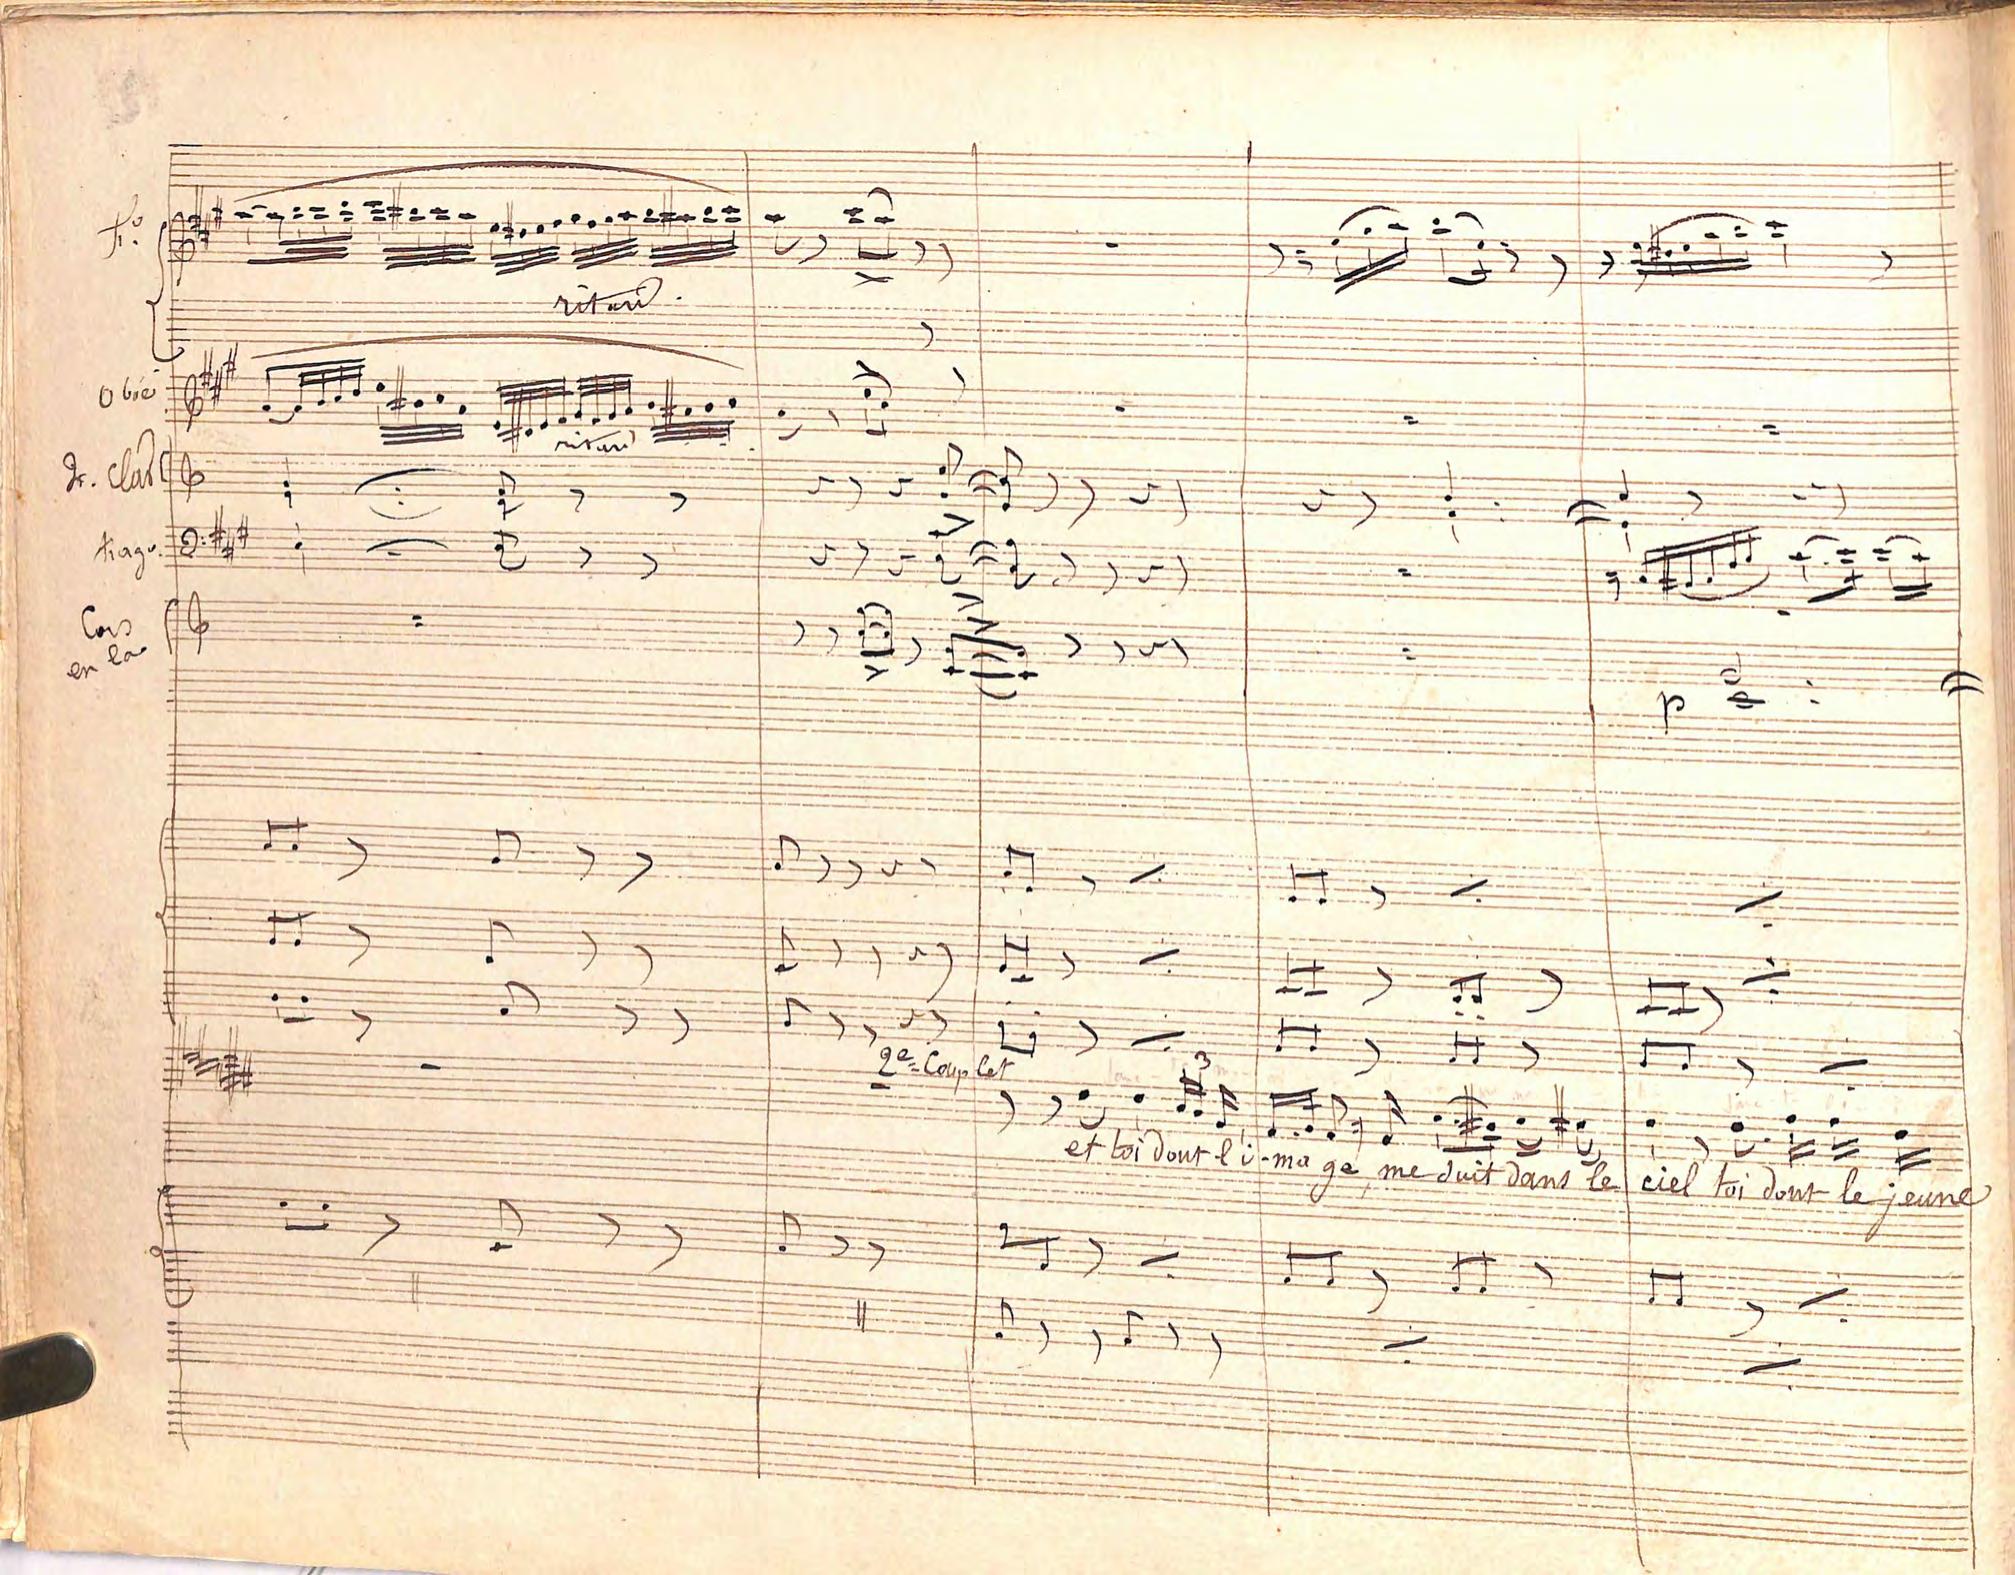 fl.
ritard.
Oboé
ritard
Clar
fago.
Cors
en la
p
2e Couplet
3
et toi dont l'i-ma ge, me suit dans le ciel toi dont le jeune